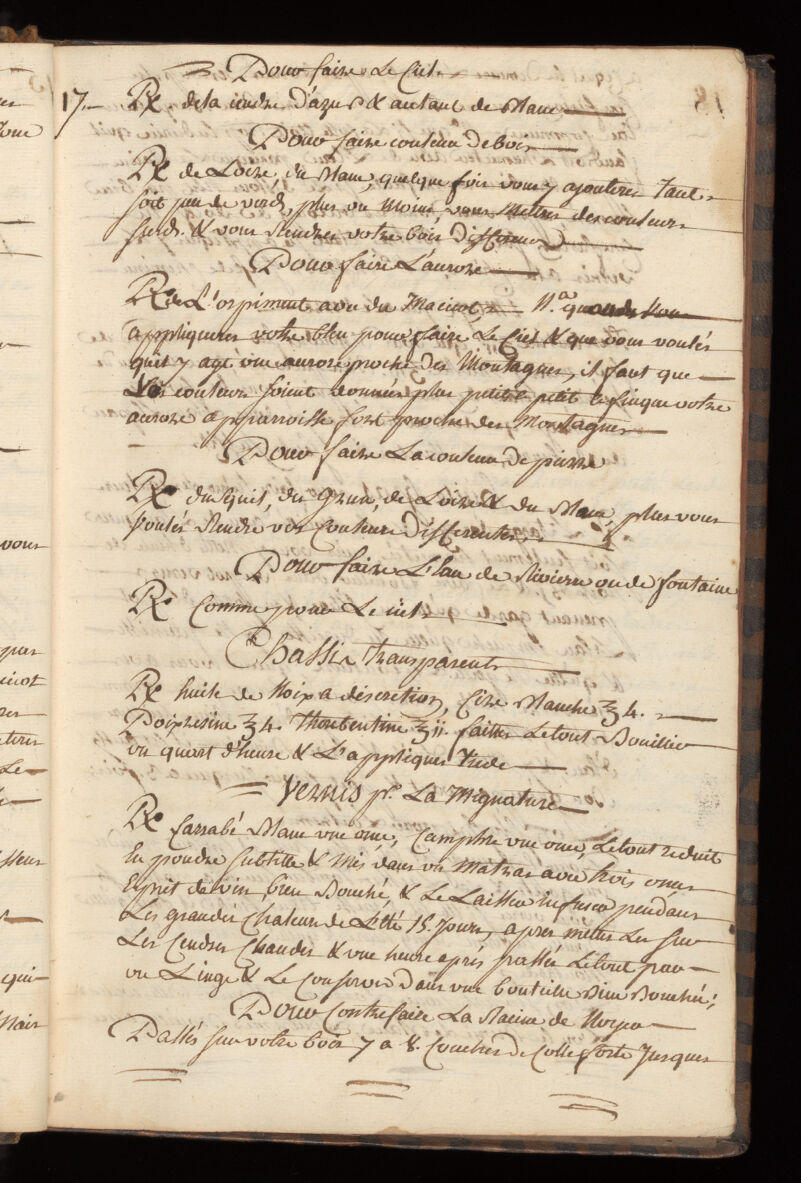 Pour faire Le Ciel
17. Rx de la cendre d'azur & autant de Blanc
Pour faire couleur de bois
Rx de L'ocre, du Blanc, quelque fois vous y ajouteres tant
soit peu de verd, plus ou Moins vous Mettres des couleurs
& vous Rendres votre bois Different
Pour faire L'aurore
Rx de L'orpiment avec du Macicot N.a quand Vous
appliqueres votre bleu pour faire Le Ciel & que vous voulés
qu'il y aye une aurore proche des Montagnes, il faut que
Les couleurs soient données plus petit a petit & que votre
aurore apparroisse fort proche des Montagnes
Pour faire La couleur de pierre
Rx du , du , de L'ocre & du Blanc, plus vous
voulés Rendre vos Couleurs Differentes
Pour faire L'Eau de Riviere ou de fontaine
Rx Comme pour Le ciel
Chassis transparents
Rx huile de Noix a discretion, Cire Blanche ℥ 4.
Poixresine ℥ 4. Thorebentine ℥ ii. faittes Le tout Bouillir
un quart d'heure & L'appliques Tiede
Vernis pr. La Mignature
Rx Carrabé Blanc une once, Camphre une once, Le tout reduit
En poudre Subtille & Mis dans un Matras avec trois onces
Esprit de vin, bien Bouché, & Le Laisser Infuser pendant
Les grandes Chaleurs de L'Eté 15. Jours, apres mettes Les sur
Les Cendres Chaudes & une heure aprés passés Le tout par
un Linge & Le Conserver Dans une bouteille Bien Bouchée;
Pour Contrefaire La Racine de Noyer
Passés sur votre bois 7 a 8. Couches De Colle forte Jusques